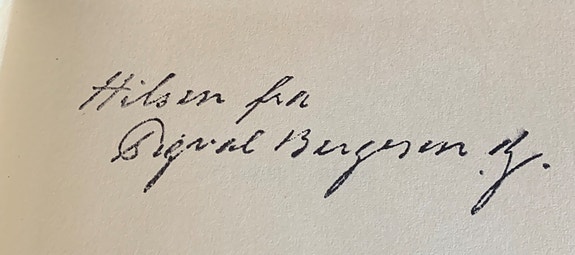 Hilsen fra
Sigval Bergesen d.y.